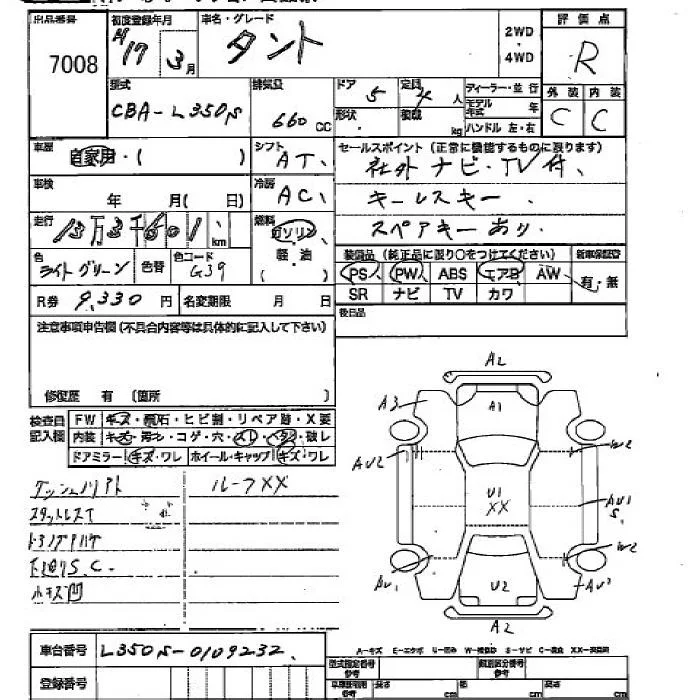 出品番号
7008
初度登録年月
H17 3月
車名・グレード
タント
2WD
・
4WD
評価点
R
型式
CBA-L350S
排気量
660 CC
ドア 5
形状
定員 4 人
積載 kg
ディーラー・並行
モデル年式 年
ハンドル 左・右
外装 内装
C C
車歴
自家用・( )
シフト
AT
セールスポイント (正常に機能するものに限ります)
社外ナビ・TV付、
キーレスキー、
スペアキーあり
車検
年 月( 日)
冷房
AC
走行
13万3千601 km
燃料
ガソリン
軽・油
( )
色
ライトグリーン
色替
色コード
G39
装備品 (純正品に限り○をつけてください)
新車保証書
PS PW ABS エアB AW
SR ナビ TV カワ
有・無
R券 9,330 円
名変期限 月 日
後日品
注意事項申告欄(不具合内容等は具体的に記入して下さい)
修復歴 有 (箇所 )
検査員記入欄
FW キズ・飛石・ヒビ割・リペア跡・X要
内装 キズ・汚れ・コゲ・穴・スレ・ベタ・破レ
ドアミラー キズ・ワレ ホイール・キャップ キズ・ワレ
ルーフXX
スタットレスT
下廻りS.C.
小キズ凹
A2
A3
A1
AU2
W2
U1
XX
AU1
S
W2
AU1
U2
AU2
A2
A-キズ E-エクボ U-凹み W-補修跡 S-サビ C-腐食 XX-交換済
車台番号
L350S-0109232
登録番号
型式指定番号
参考
類別区分番号
参考
車庫証明用
参考
長さ cm
幅 cm
高さ cm